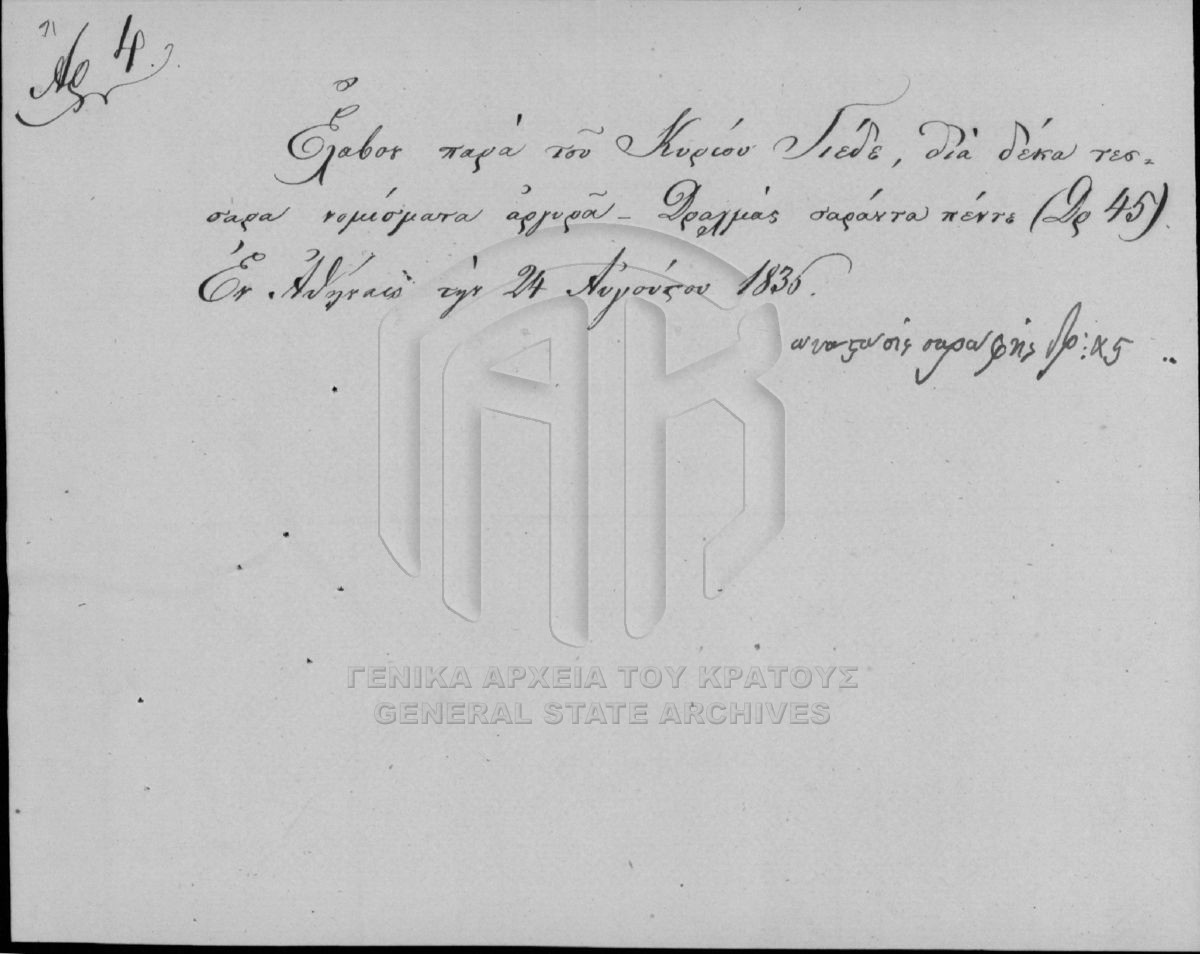 Αρ 4.
Ἔλαβον παρὰ τοῦ Κυρίου Γιέδε, διὰ δέκα τεσ-
σαρα νομίσματα ἀργυρᾶ - Δραχμὰς σαράντα πέντε (Δρ 45).
Ἐν Ἀθήναις τὴν 24 Αὐγούστου 1836.
αναστασις σαραφης δρ: 45
ΓΕΝΙΚΑ ΑΡΧΕΙΑ ΤΟΥ ΚΡΑΤΟΥΣ
GENERAL STATE ARCHIVES